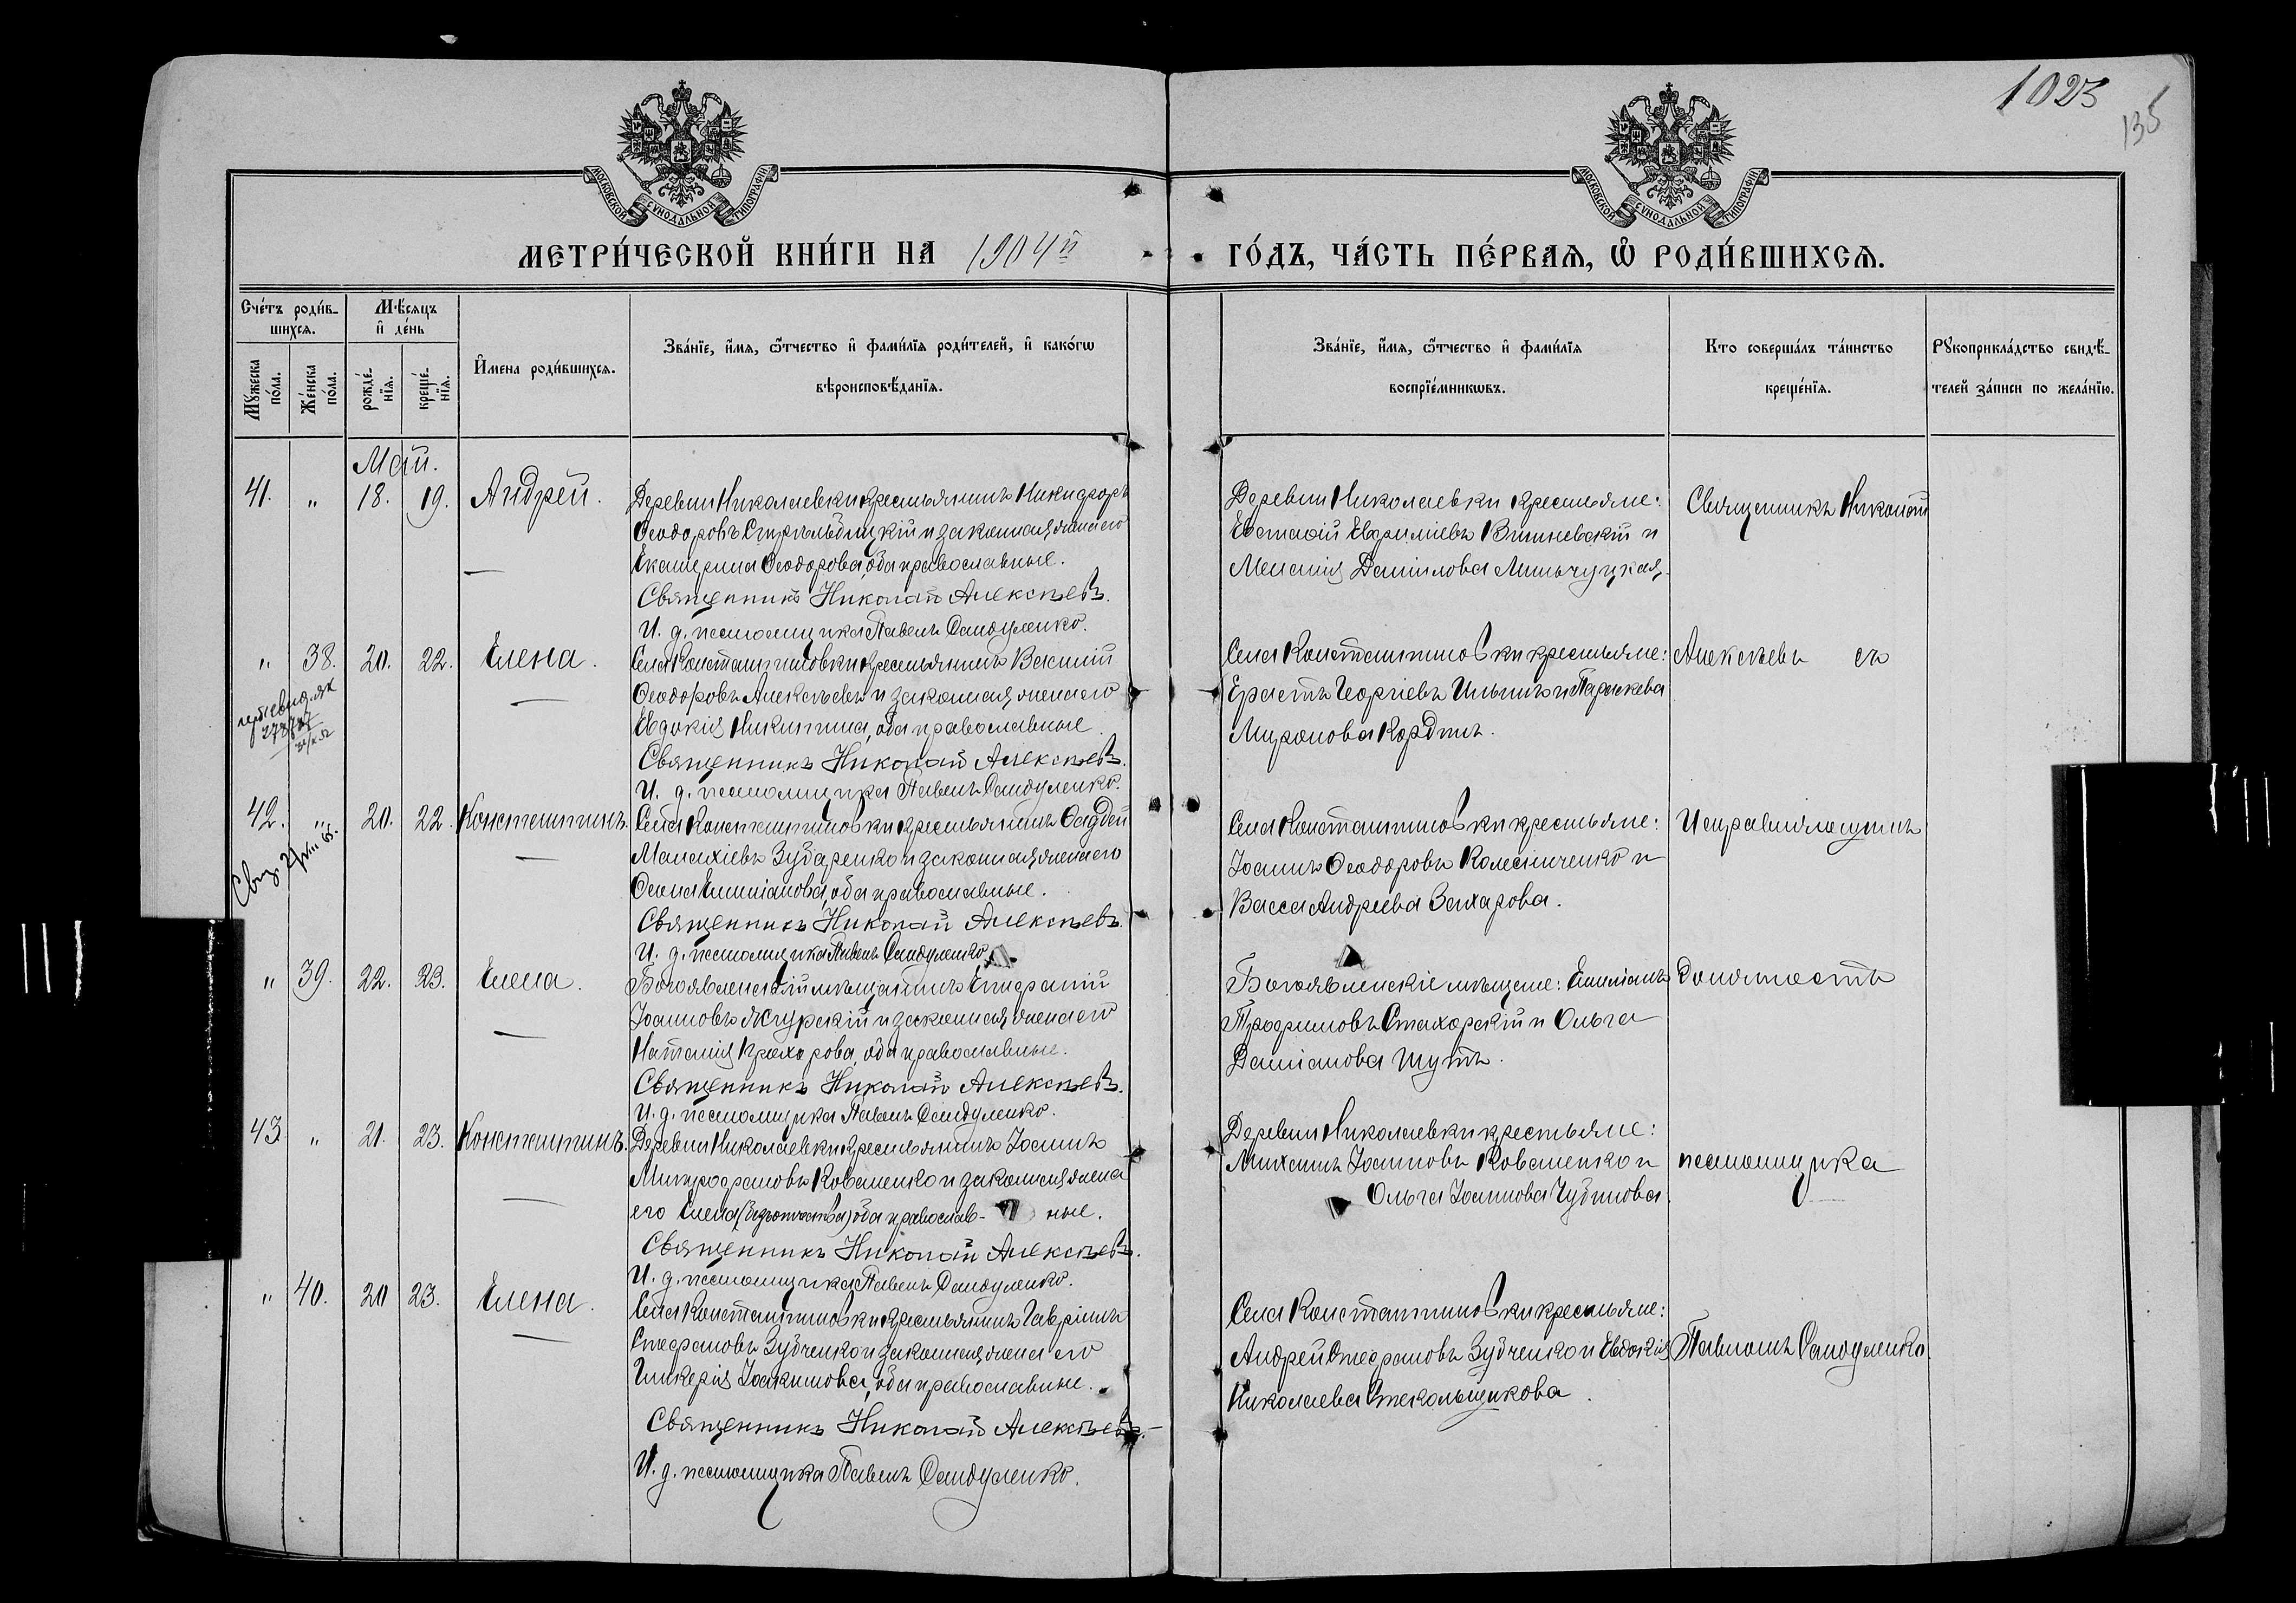 1023
135
МОСКОВСКОЙ СѴНОДАЛЬНОЙ ТИПОГРАФІИ
МОСКОВСКОЙ СѴНОДАЛЬНОЙ ТИПОГРАФІИ
МЕТРИ́ЧЕСКОЙ КНИ́ГИ НА 1904й
ГО́ДЪ, ЧА́СТЬ ПЕ́РВАѦ, Ѽ РОДИ́ВШИХСѦ.
Сче́тъ роди́в-
шихсѧ.
Мꙋ́жеска по́ла.
Же́нска по́ла.
Мѣ́сяцъ
и҆ де́нь
рожде́-
нїѧ.
креще́-
нїѧ.
И҆мена роди́вшихсѧ.
Зва́нїе, и҆́мѧ, ѻ҆́тчество и҆ фами́лїѧ роди́телей, и҆ како́гѡ
вѣроисповѣ́данїѧ.
Зва́нїе, и҆́мѧ, ѻ҆́тчество и҆ фами́лїѧ
воспрїе́мникѡвъ.
Кто соверша́лъ та́инство
креще́нїѧ.
Рꙋкоприкла́дство свидѣ́-
телей за́писи по жела́нїю.
Май.
41. " 18. 19. Андрей.
Деревни Николаевки крестьянинъ Никифоръ
Ѳеодоровъ и законная жена его
Екатерина Ѳеодорова, оба православные.
Священникъ Николай Алексѣевъ.
И. д. псаломщика Павелъ Сандуленко.
Деревни Николаевки крестьяне:
Евстафій Евфиміевъ Вишневскій и
Меланія Даніилова Мильчуцкая.
Священникъ Николай
" 38. 20. 22. Елена.
Села Константиновки крестьянинъ Василій
Ѳеодоровъ Алексѣевъ и законная жена его
Евдокія Никитина, оба православные.
Священникъ Николай Алексѣевъ.
И. д. псаломщика Павелъ Сандуленко.
Села Константиновки крестьяне:
Ерастъ Георгіевъ Ильинъ и Параскева
Миронова Кордтъ.
Алексѣевъ съ
42. " 20. 22. Константинъ.
Села Константиновки крестьянинъ Ѳаддей
Малахіевъ Зубаренко и законная жена его
Ѳекла Емиліанова, оба православные.
Священникъ Николай Алексѣевъ.
И. д. псаломщика Павелъ Сандуленко.
Села Константиновки крестьяне:
Іоаннъ Ѳеодоровъ Колесниченко и
Васса Андреева Захарова.
Исправляющимъ
" 39. 22. 23. Елена.
Богоявленскій мѣщанинъ Епифаній
Іоанновъ и законная жена его
Наталія Прохорова, оба православные.
Священникъ Николай Алексѣевъ.
И. д. псаломщика Павелъ Сандуленко.
Богоявленскіе мѣщане: Емиліанъ
Трофимовъ Стахорскій и Ольга
Даміанова Шутъ.
Должность
43 " 21. 23. Константинъ.
Деревни Николаевки крестьянинъ Іоаннъ
Митрофановъ Коваленко и законная жена
его Елена (безъ отчества) оба православ- ные.
Священникъ Николай Алексѣевъ.
И. д. псаломщика Павелъ Сандуленко.
Деревни Николаевки крестьяне:
Михаилъ Іоанновъ Коваленко и
Ольга Іоаннова Чубинова.
псаломщика
" 40. 20 23. Елена.
Села Константиновки крестьянинъ Гавріилъ
Стефановъ Зубченко и законная жена его
Гликерія Іоакимова, оба православные.
Священникъ Николай Алексѣевъ.
И. д. псаломщика Павелъ Сандуленко.
Села Константиновки крестьяне:
Андрей Стефановъ Зубченко и Евдокія
Николаева Стекольщикова.
Павломъ Сандуленко.